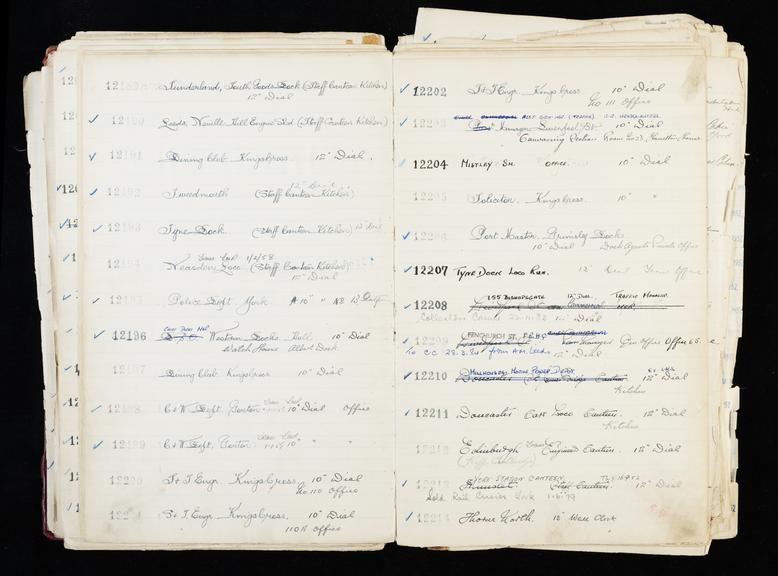 12189 Sunderland, South Goods Dock (Staff Canteen Kitchen)
12" Dial
12190 Leeds, Neville Hill Engine Shd (Staff Canteen Kitchen)
12191 Dining Club Kings Cross. 12" Dial.
12192 Tweedmouth (Staff Canteen Kitchen)
12" Dial
12193 Tyne Dock. (Staff Canteen Kitchen) 12" Dial
1/2/58
12194 Loco (Staff Canteen Kitchen)
12" Dial
12195 Police Dept York. 10"
12196 Western Docks. Hull 10" Dial
Watch House Albert Dock
12197 Dining Club Kings Cross 10" Dial
12198 C&W Dept. Gorton 10" Dial Office
12199 C&W Dept. Gorton 10" " "
12200 S&T Engr. Kings Cross 10" Dial
No 110 Office
12201 S&T Engr. Kings Cross. 10" Dial
110B Office
12202 S&T Engr. Kings Cross 10" Dial
No 111 Office
12203 Liverpool St. 10" Dial
12204 Mistley Sn. Office. 10" Dial
12205 Solicitor. Kings Cross. 10" "
12206 Port Master. Grimsby Docks
10" Dial Dock Agents Private Office
12207 Tyne Dock Loco Run. 12" Dial Office
155 Bishopsgate 12" Dial. Traffic Manager.
12208
12" Dial
Fenchurch St.
12209 Office 65.
to C.C. 28.3.80 from A.M. Leeds 12" Dial
Millhouses Motive Power Depot
12210 Doncaster Canteen 12" Dial
Kitchen
12211 Doncaster Carr Loco Canteen. 12" Dial
Kitchen
12212 Edinburgh Canteen. 12" Dial
York Station Canteen
12213 Canteen. 12" Dial
Sold Rail Carrier York 1.6.79
12214 Thorne North. 12" Wall Clock